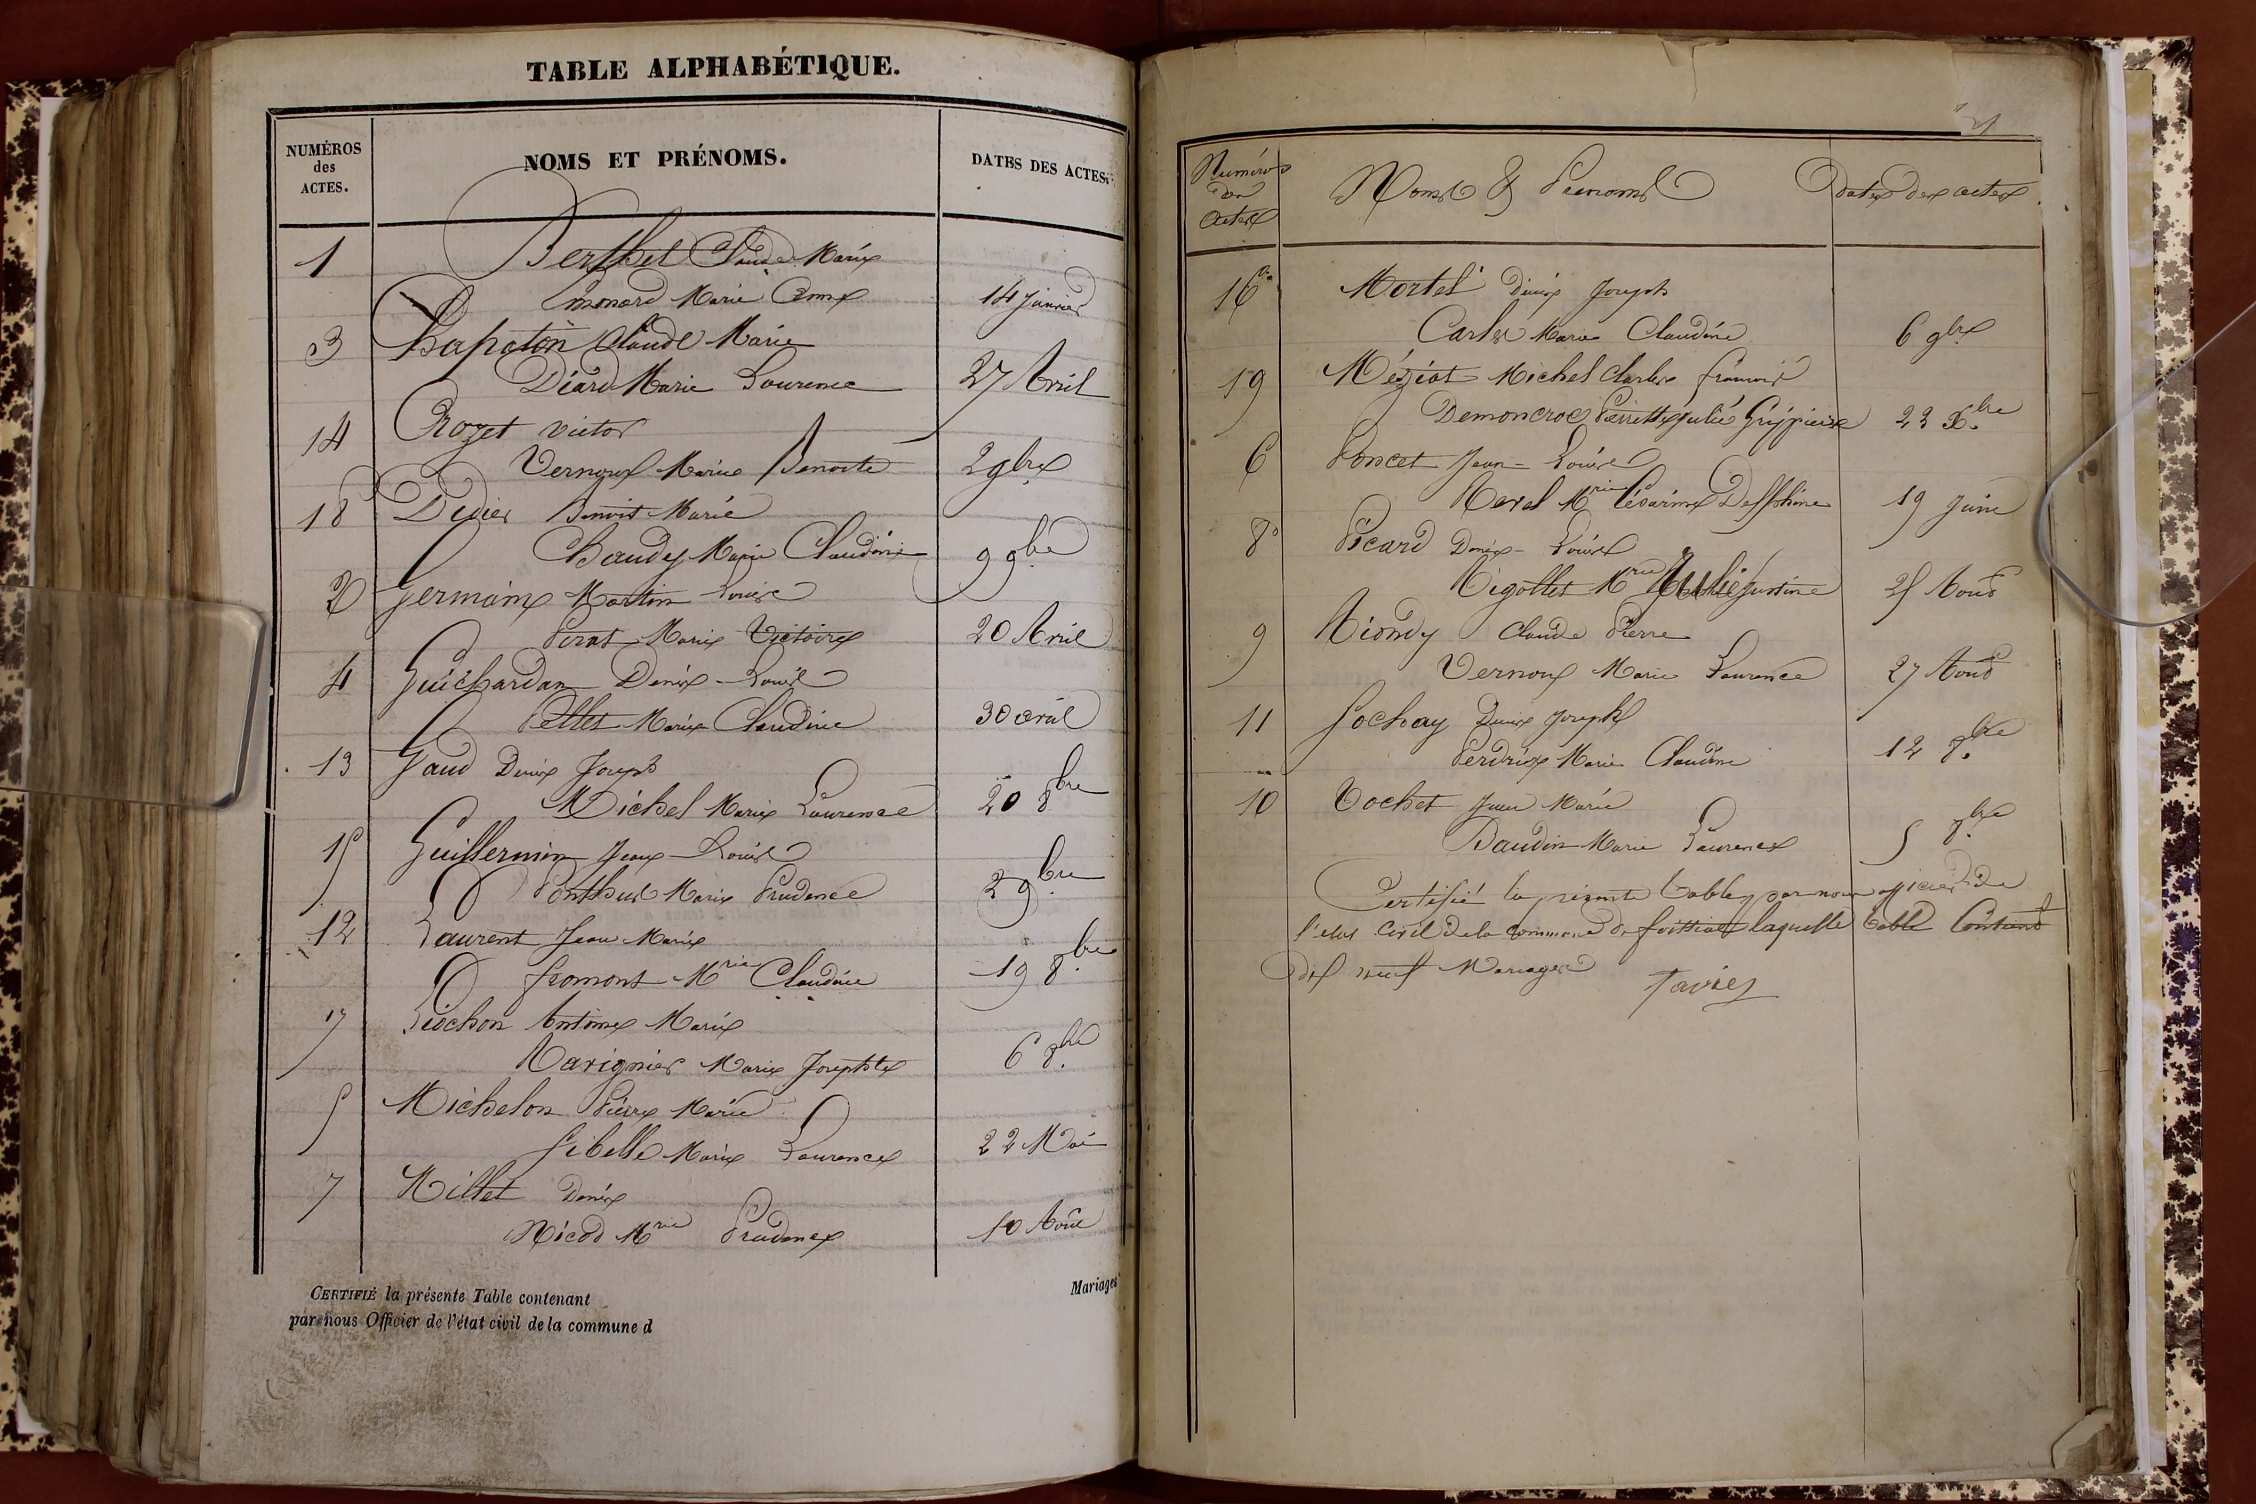 TABLE ALPHABÉTIQUE.
NUMÉROS
des
ACTES.
NOMS ET PRÉNOMS.
DATES DES ACTES.
1 Berthet Claude Marie
Emonard Marie 14 janvier
3 Chapoton Claude Marie
Déard Marie Laurence 27 Avril
14 Crozet victor
Vernoux Marie Benoite 2 9bre
18 Didier Benoit Marie
Chaudy Marie Claudine 9 9bre
2 Germain Martin Louis
Perat Marie Victoire 20 Avril
4 Guichardan Denis - Louis
Pellet Marie Claudine 30 avril
13 Gaud Denis Joseph
Michel Marie Laurence 20 8bre
15 Guillermin Jean - Louis
Ponthus Marie Prudence 3 9bre
12 Laurent Jean Marie
fromont Mrie Claudine 19 8bre
17 Liochon Antoine Marie
Navignier Marie Josephte 6 8bre
5 Michelon Pierre Marie
Sibelle Marie Laurence 22 Mai
7 Millet Denis
Nicod Mrie Prudence 10 Août
CERTIFIÉ la présente Table contenant
Mariages
par nous Officier de l'état civil de la commune d
21
Numéros
des
actes
Noms & Prenoms
Dates des actes
16 Mortel Denis Joseph
Carlet Marie Claudine 6 9bre
19 Méziat Michel Charles françois
Demoncroc Pierrette julie 23 Xbre
6 Poncet Jean - Louis
Neral Mrie Césarine Delphine 19 juin
8 Picard Denis - Louis
Rigollet Mrie Julie justine 25 Aout
9 Riondy Claude Pierre
Vernoux Marie Laurence 27 Aout
11 Sochay Denis joseph
Perdrix Marie Claudine 12 8bre
10 Vochet Jean Marie
Baudin Marie Laurence 5 8bre
Certifié la présente table par nous officier de
l'etat civil de la commune de foissiat laquelle table Contient
dix neuf Mariages
Favier